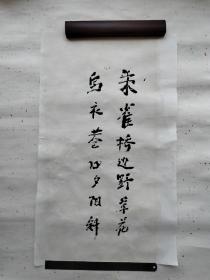 朱雀桥边野草花
烏衣巷口夕阳斜